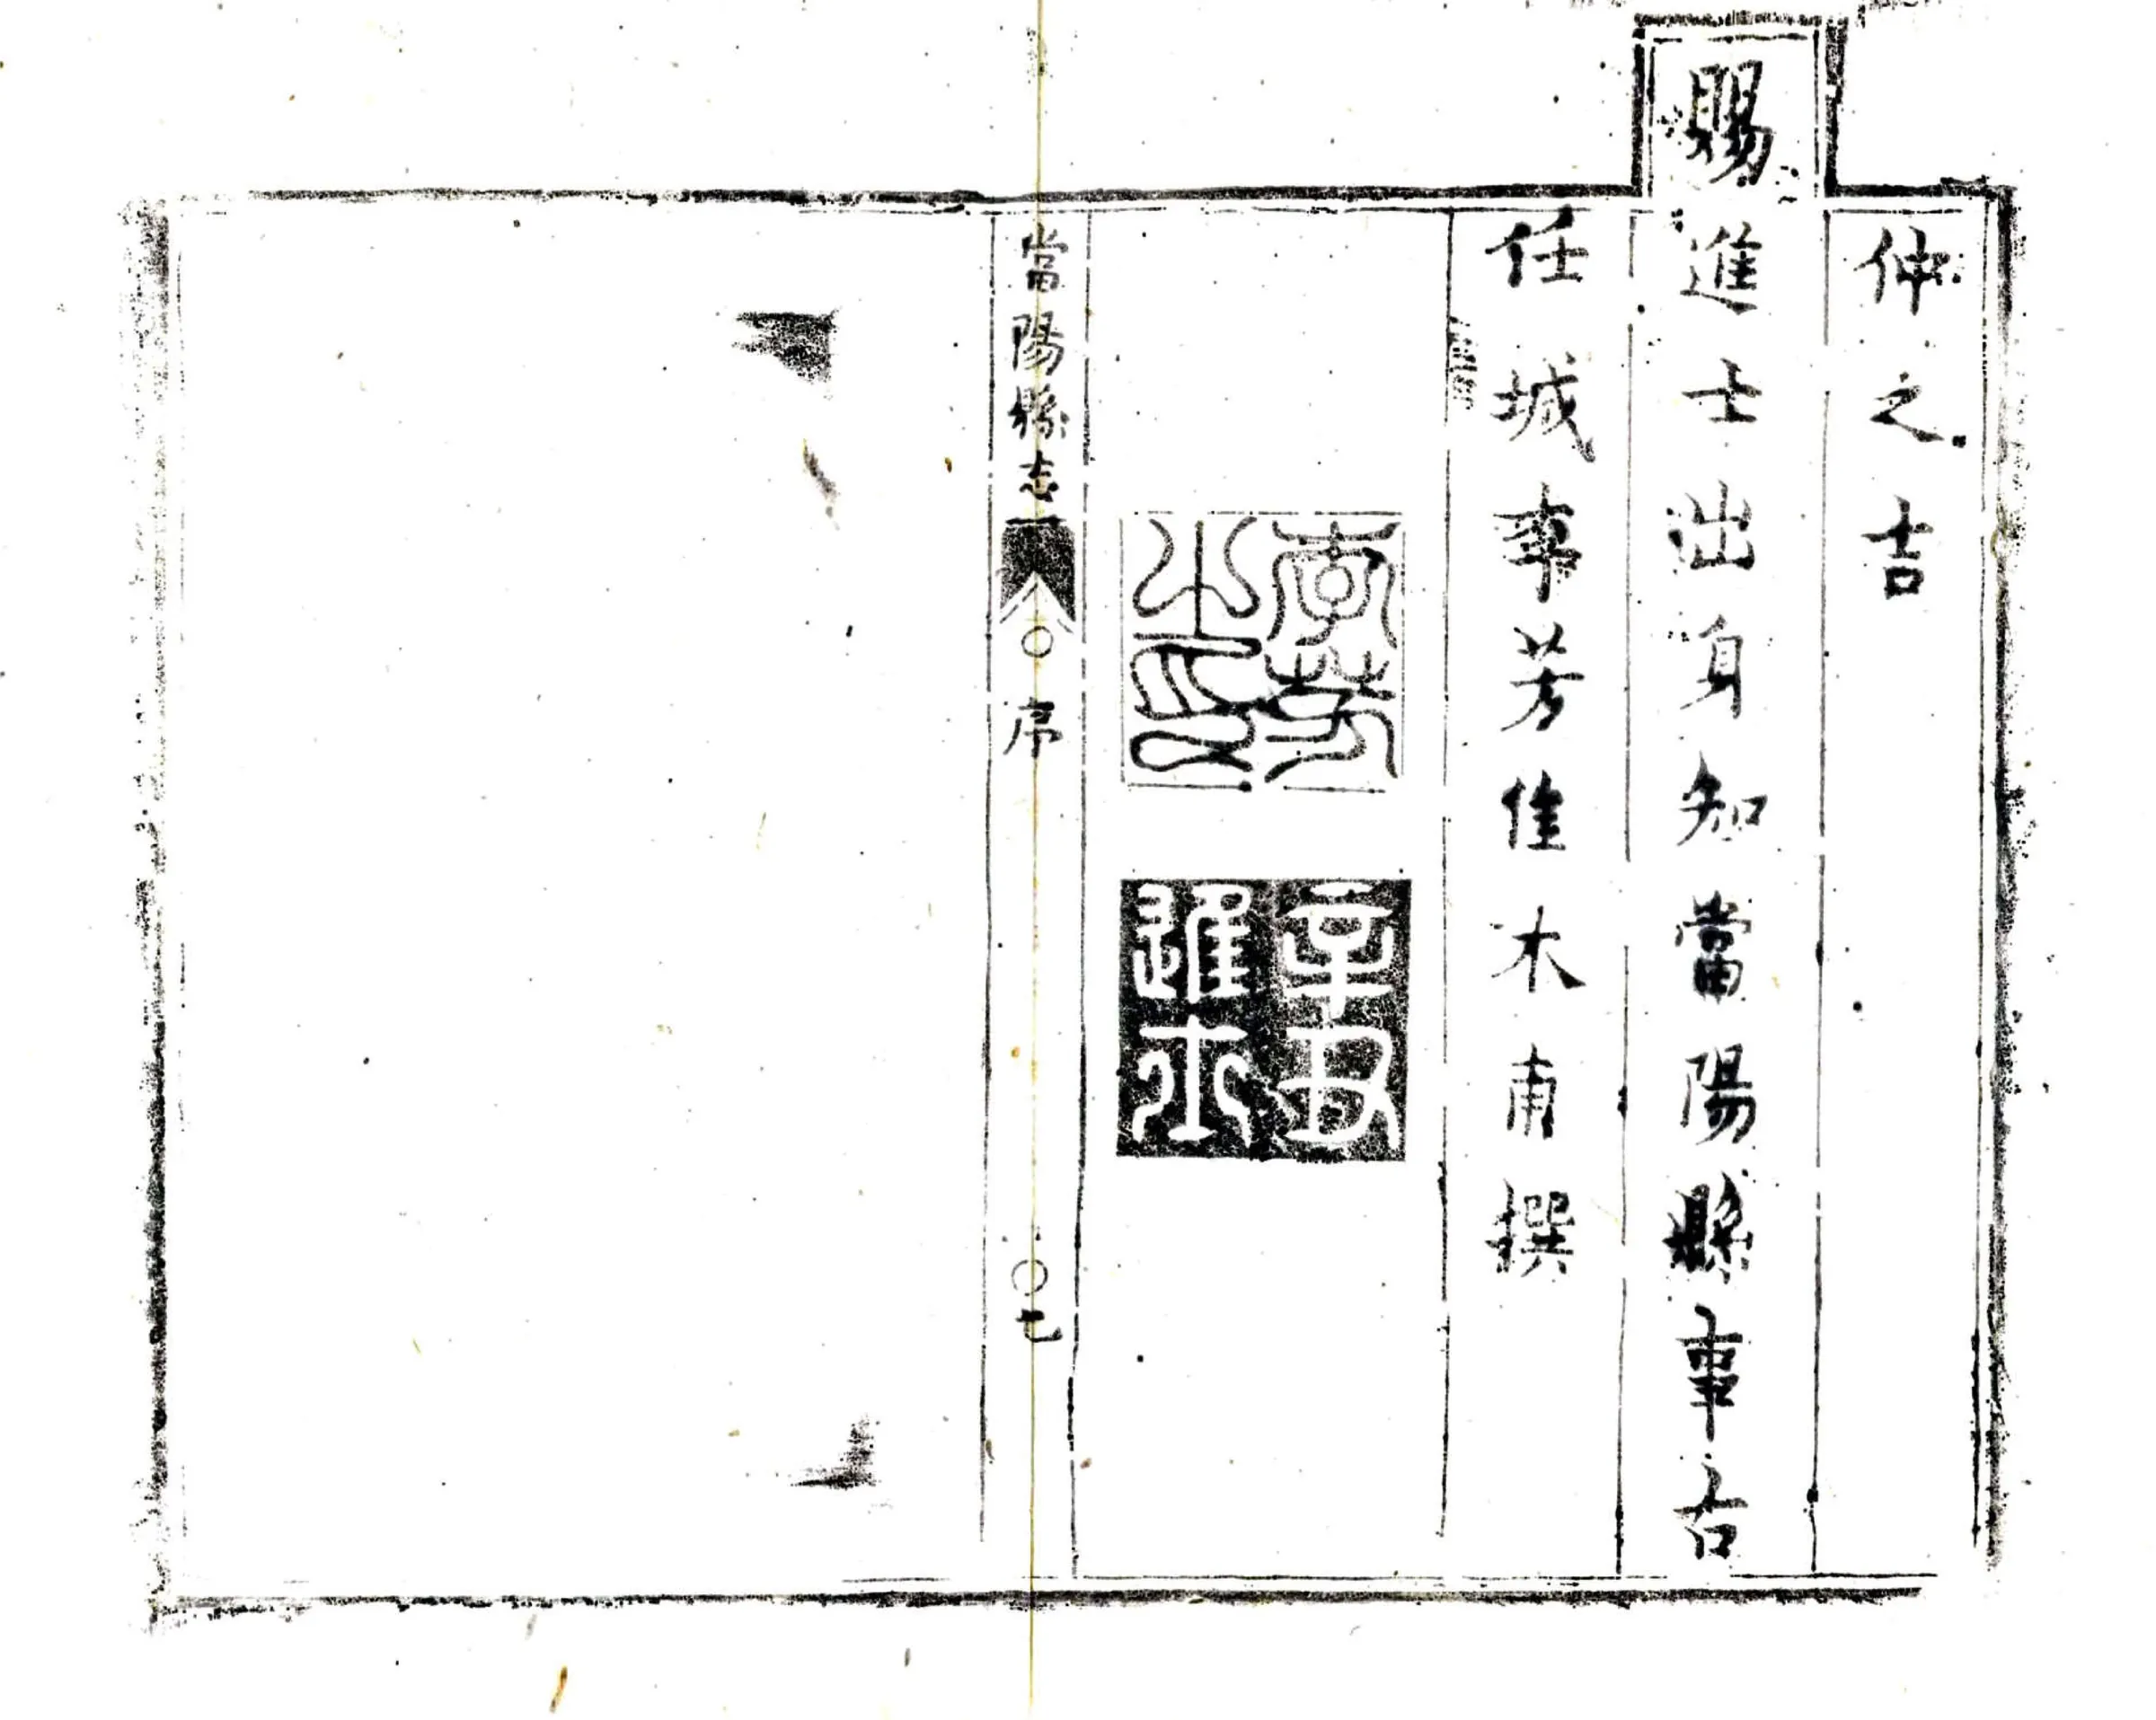 仲之吉
賜進士出身知當陽縣事古
任城芳佳木甫撰
芳之印
辛丑進士
當陽縣志
序
七